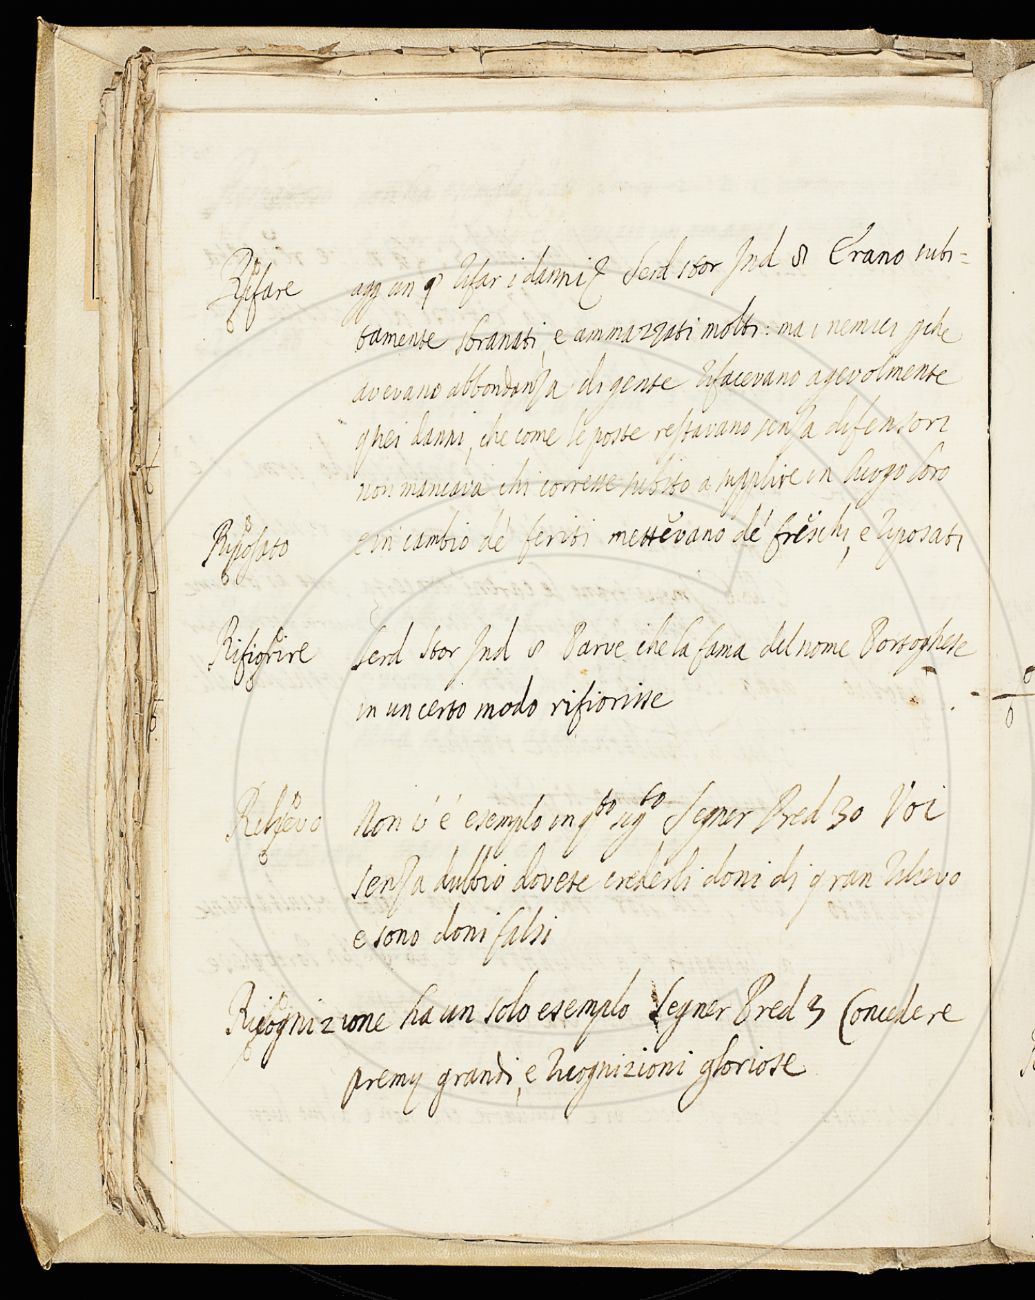 Rifare agg un Rifar i danni Serd stor Ind 8 Erano subi=
tamente sbranati, e ammazzati molti: ma i nemici pche
avevano abbondanza di gente rifacevano agevolmente
quei danni, che come le poste restavano senza difensori
non mancava chi corresse subito a supplire in luogo loro
Riposato e in cambio de feriti mettevano de freschi, e riposati
Rifiorire Serd stor Ind 8 Parve che la fama del nome Portoghese
in un certo modo rifiorisse
Rilievo Non v'è esempio in qto sigto Segner Pred 30 Voi
senza dubbio dovete crederli doni di gran rilievo
e sono doni falsi
Ricognizione ha un solo esempio Segner Pred 3 Concedere
premy grandi, e ricognizioni gloriose